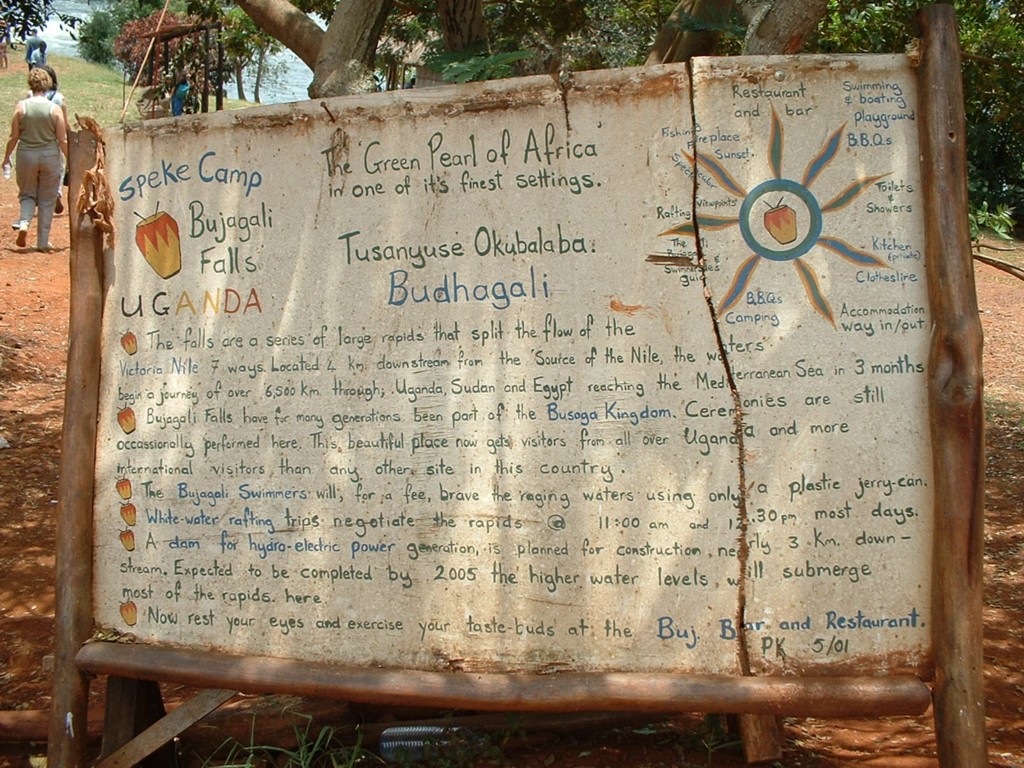 Speke Camp
Bujagali
Falls
UGANDA
The 'Green Pearl of Africa'
in one of it's finest settings.
Tusanyuse Okubalaba.
Budhagali
Restaurant
and bar
Swimming
& boating
Playground
B.B.Qs
Toilets
&
Showers
Kitchen
(private)
Clothesline
Accommodation
way in/out
B.B.Qs
Camping
guide
Rafting
Viewpoints
Spectacular
Sunset
Fireplace
Fishing
The falls are a series of large rapids that split the flow of the
Victoria Nile 7 ways. Located 4 km. downstream from the 'Source of the Nile, the waters'
begin a journey of over 6,500 km through; Uganda, Sudan and Egypt reaching the Mediterranean Sea in 3 months
Bujagali Falls have for many generations been part of the Busoga Kingdom. Ceremonies are still
occassionally performed here. This beautiful place now gets visitors from all over Uganda and more
international visitors than any other site in this country.
The Bujagali Swimmers will, for a fee, brave the raging waters using only a plastic jerry-can.
White-water rafting trips negotiate the rapids @ 11:00 am and 12.30pm most days.
A dam for hydro-electric power generation, is planned for construction, nearly 3 Km. down-
stream. Expected to be completed by 2005 the higher water levels will submerge
most of the rapids. here.
Now rest your eyes and exercise your taste-buds at the Buj. Bar and Restaurant.
PK 5/01